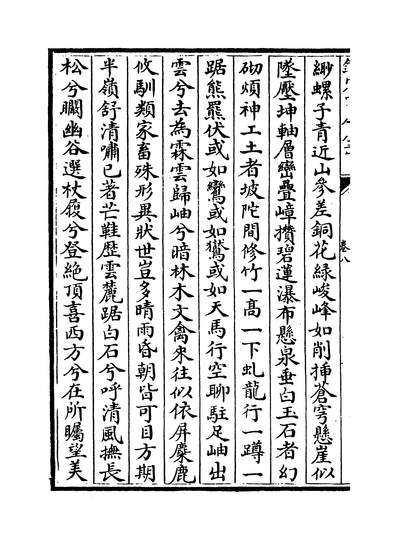 卷八
緲螺子青近山參差銅花緑峻峰如削揷蒼穹懸崖似
墜壓坤軸層巒疊嶂攅碧蓮瀑布懸泉垂白玉石者幻
砌煩神工土者坡陀間修竹一高一下虬龍行一蹲一
踞熊羆伏或如鸞或如鷲或如天馬行空聊駐足岫出
雲兮去為霖雲歸岫兮暗林木文禽來往似依屏麋鹿
攸馴類家畜殊形異狀世豈多晴雨昏朝皆可目方期
半嶺舒清嘯已著芒鞋歷雲麓踞白石兮呼清風撫長
松兮闞幽谷選杖履兮登絶頂喜西方兮在所矚望美